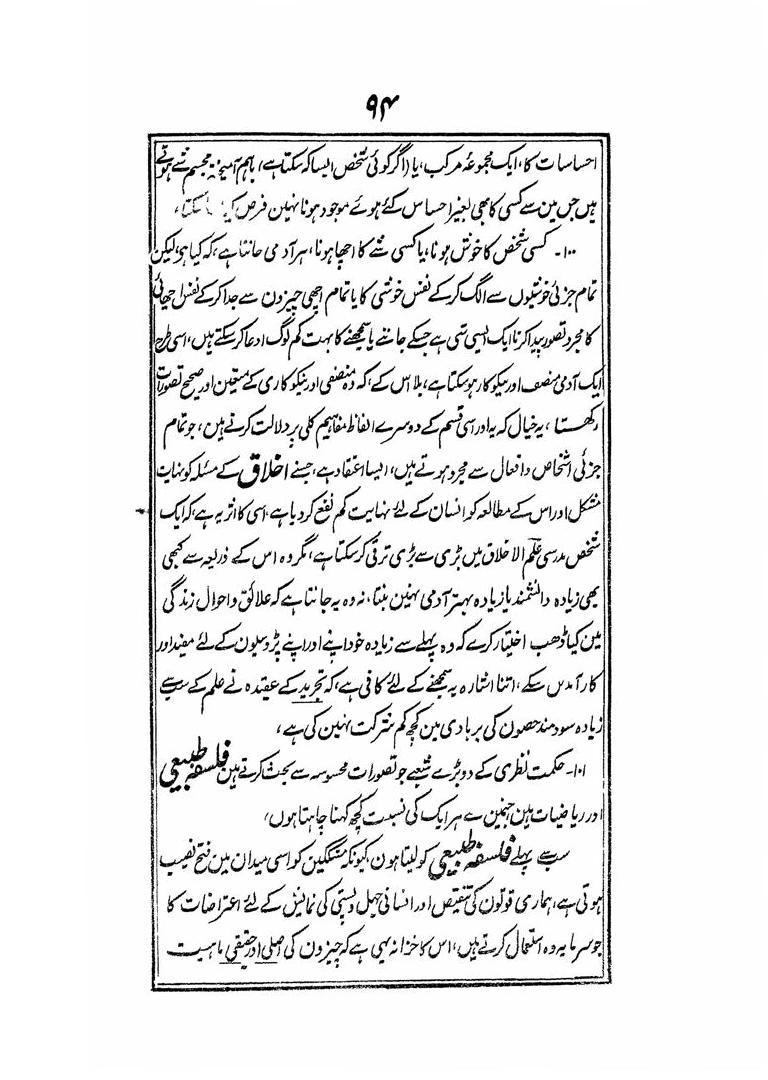 ۹۴
احساسات کا، ایک مجموعۂ مرکب، یا (اگر کوئی شخص ایسا کہ سکتا ہے) باہم آمیختہ مجسم شے ہوتے
ہیں جن مین سے کسی کا بھی بغیر احساس کئے ہوئے موجود ہونا نہین فرض کیا
۱۰۰۔ کسی شخص کا خوش ہونا، یا کسی شے کا اچھا ہونا، ہر آدمی جانتا ہے، کہ کیا ہو، لیکن
تمام جزئی خوشیوں سے الگ کر کے نفس خوشی کا یا تمام اچھی چیزون سے جدا کر کے نفس اچھائی
کا مجرد تصور پیدا کرنا ایک ایسی شی ہے جسکے جاننے یا سمجھنے کا بہت کم لوگ ادعا کر سکتے ہیں، اسی طرح
ایک آدمی منصف اور نیکو کار ہو سکتا ہے، بلا اس کے، کہ وہ منصفی اور نیکو کاری کے متعین اور صحیح تصورات
رکھتا ، یہ خیال کہ یہ اور اسی قسم کے دوسرے الفاظ مفاہیم کلی پر دلالت کرتے ہین، جو تمام
جزئی اشخاص و افعال سے مجرد ہوتے ہیں، ایسا اعتقاد ہے، جسنے اخلاق کے مسئلہ کو نہایت
مشکل اور اس کے مطالعہ کو انسان کے لئے نہایت کم نفع کر دیا ہے، اسی کا اثر یہ ہے، کہ ایک
شخص مدرسی علم الاخلاق میں بڑی سے بڑی ترقی کر سکتا ہے، مگر وہ اس کے ذریعہ سے کبھی
بھی زیادہ دانشمند یا زیادہ بہتر آدمی نہین بنتا، نہ وہ یہ جانتا ہے کہ علائق و احوال زندگی
مین کیا ڈھب اختیار کرے کہ وہ پہلے سے زیادہ خود اپنے اور اپنے پڑوسیون کے لئے مفید اور
کار آمد بن سکے، اتنا اشارہ یہ سمجھنے کے لئے کافی ہے، کہ تجرید کے عقیدہ نے علم کے سب سے
زیادہ سود مند حصون کی بربادی مین کچھ کم شرکت نہین کی ہے،
۱۰۱۔ حکمت نظری کے دو بڑے شعبے جو تصورات محسوسہ سے بحث کرتے ہین فلسفۂ طبیعی
اور ریاضیات ہین جنمین سے ہر ایک کی نسبت کچھ کہنا چاہتا ہوں،
سب سے پہلے فلسفۂ طبیعی کو لیتا ہون، کیونکہ متشککین کو اسی میدان مین فتح نصیب
ہوتی ہے، ہماری قوتون کی تنقیص اور انسانی جہل و پستی کی نمایش کے لئے اعتراضات کا
جو سرمایہ وہ استعمال کرتے ہیں، اس کا خزانہ یہی ہے کہ چیزون کی اصلی اور حقیقی ماہیت